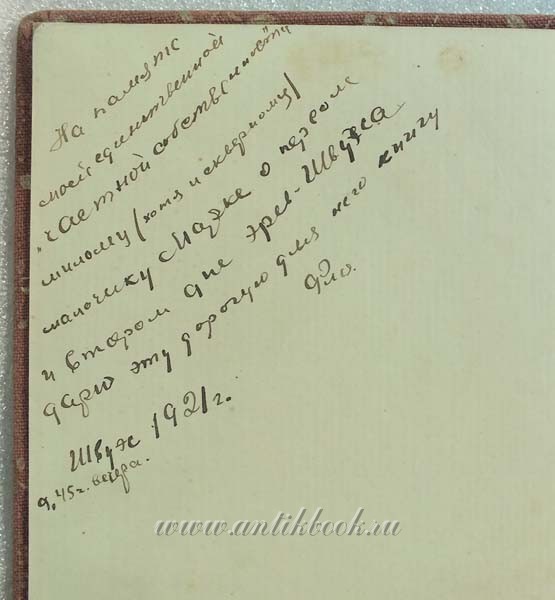 На память
моей единственной
"частной собственности
милому /хотя и скверному/
мальчику Мазке о первом
и втором дне Эрев-Швуэса
дарю эту дорогую для него книгу
Фло.
Швуэс 1921 г.
9,45 г. вечера.
www.antikbook.ru